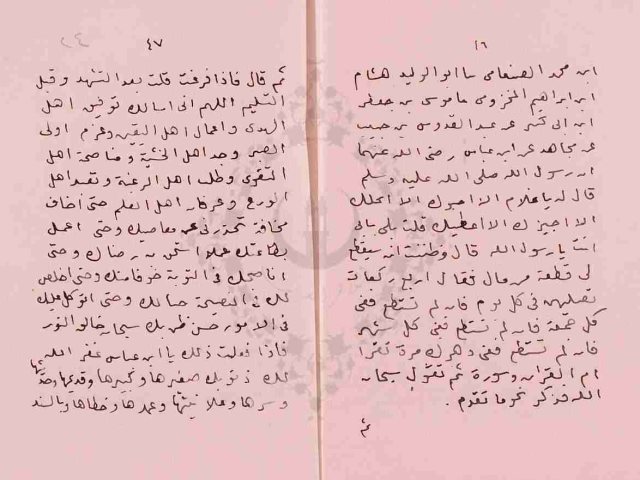 ٤٦
ابن محمد الصنعانى نا ابو الوليد هشام
ابن ابراهيم المخزومى نا موسى بن جعفر
ابن ابى كثير عن عبد القدوس بن حبيب
عن مجاهد عن ابن عباس رضى الله عنهما
ان رسول الله صلى الله عليه وسلم
قال له يا غلام الا احبوك الا انحلك
الا اجيزك الا اعطيك قلت بلى بابى
انت يا رسول الله قال وظننت انه سيقطع
لى قطعة من مال فقال اربع ركعات
تصليهن فى كل يوم فان لم تستطع ففى
كل جمعة فان لم تستطع ففى كل شهر
فان لم تستطع ففى دهرك مرة تقرأ
ام القران وسورة ثم تقول سبحان
الله فذكر نحو ما تقدم .
ثم
٤٧
٢٤
ثم قال فاذا فرغت قلت بعد التشهد وقبل
التسليم اللهم انى اسالك توفيق اهل
الهدى واعمال اهل اليقين وعزم اولى
الصبر وجد اهل الخشية ومناصحة اهل
التقوى وطلب اهل الرغبة وتعبد اهل
الورع وعرفان اهل العلم حتى اخاف
مخافة تحجزنى عن معاصيك وحتى اعمل
بطاعتك عملا استحق به رضاك وحتى
اناصحك فى التوبة خوفا منك وحتى اخلص
لك فى النصيحة حبا لك وحتى اتوكل عليك
فى الامور حسن ظن بك سبحان خالق النور
فاذا فعلت ذلك يا ابن عباس غفر الله
لك ذنوبك صغيرها وكبيرها وقديمها وحديثها
وسرها وعلانيتها وعمدها وخطاها وبالسند